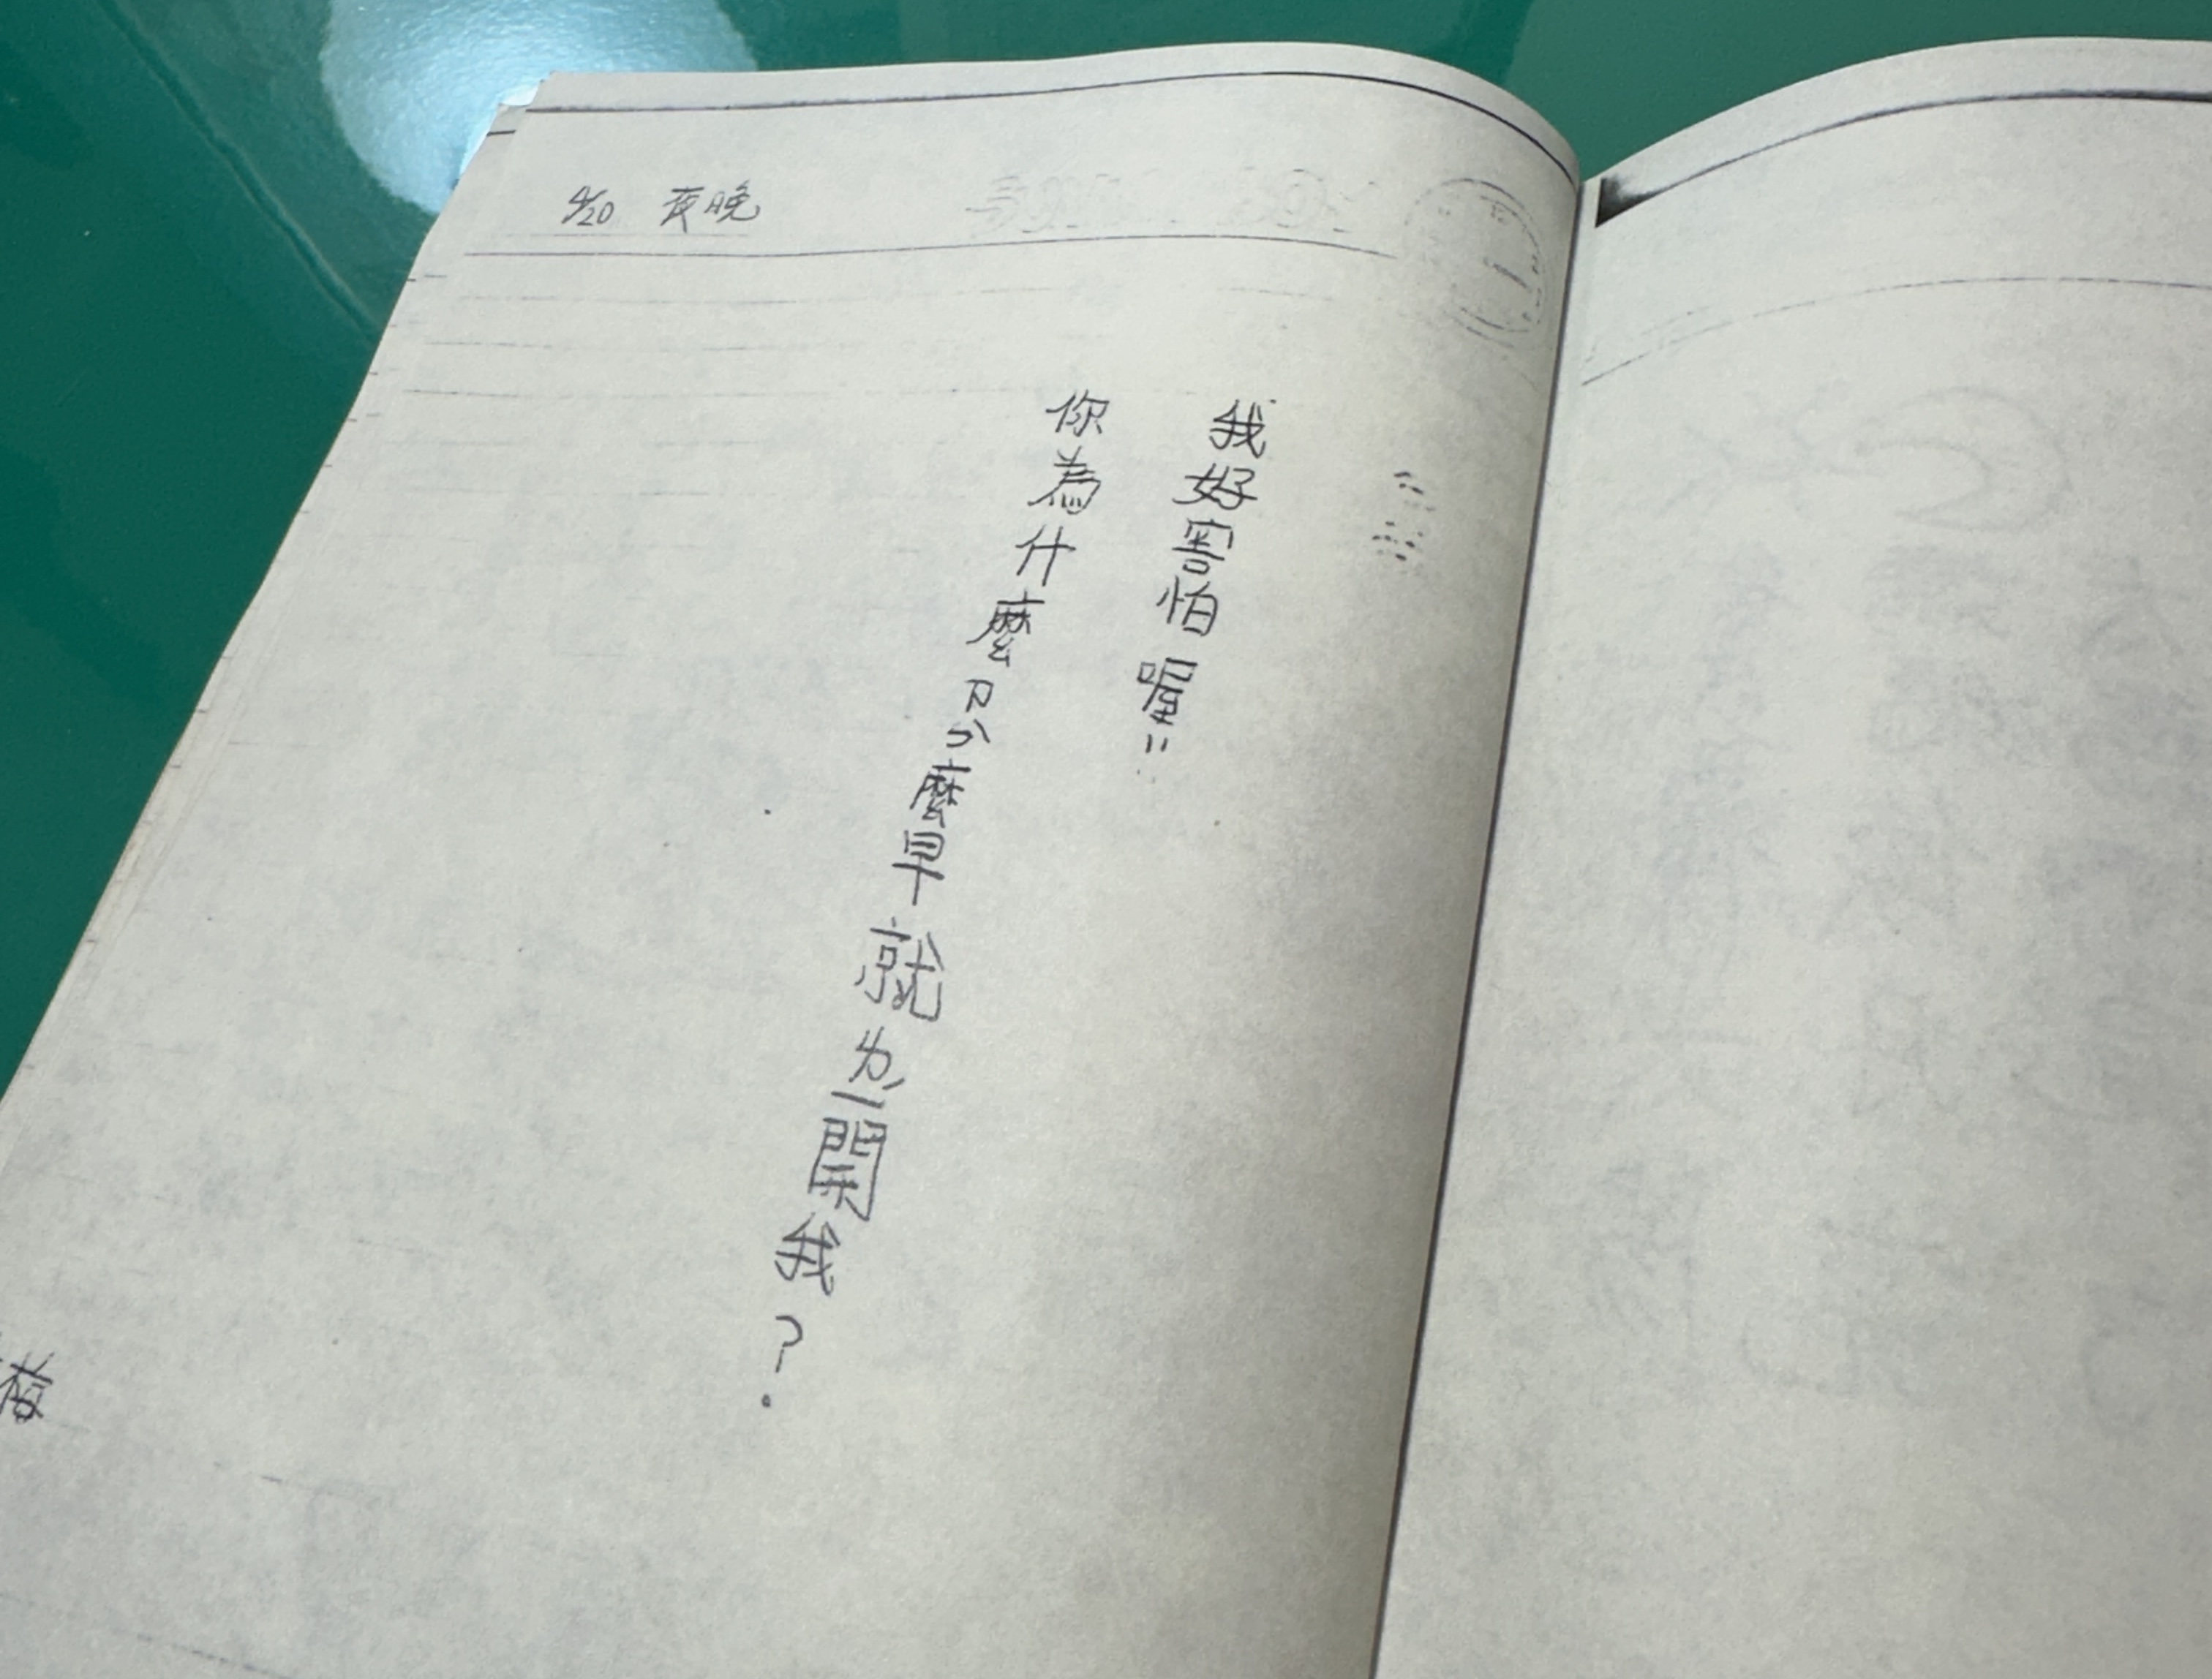 4/20 夜晚
我好害怕喔!!
你為什麼ㄗㄣ麼早就ㄌㄧ開我？